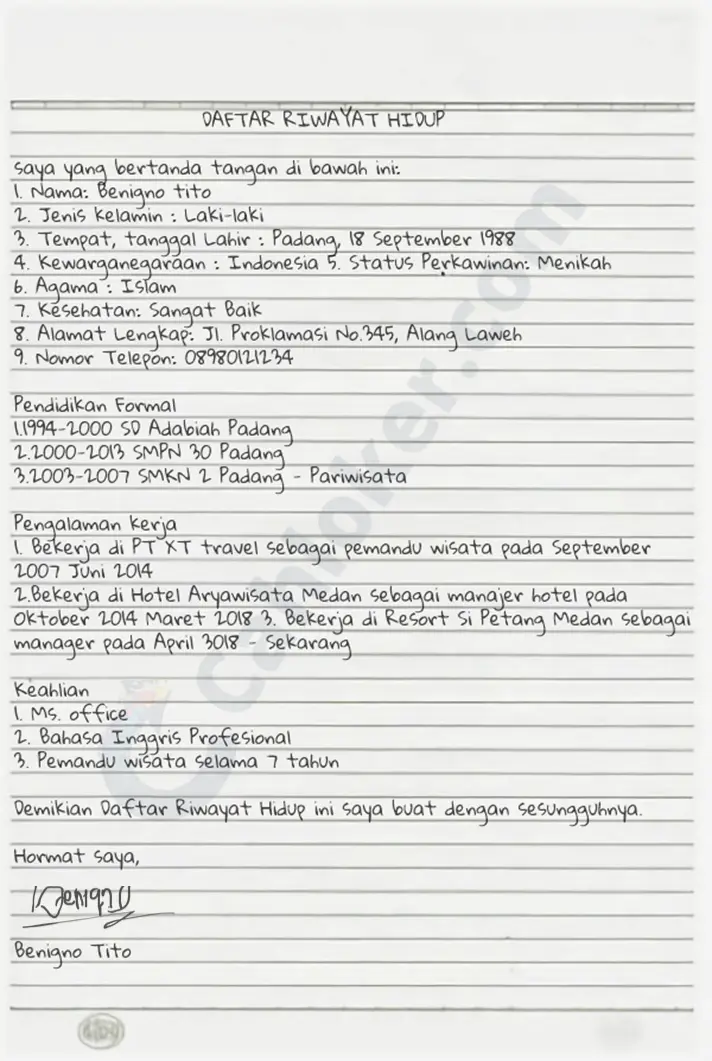 DAFTAR RIWAYAT HIDUP
saya yang bertanda tangan di bawah ini:
1. Nama: Benigno tito
2. Jenis kelamin : Laki-laki
3. Tempat, tanggal Lahir : Padang, 18 September 1988
4. Kewarganegaraan : Indonesia 5. Status Perkawinan: Menikah
6. Agama : Islam
7. Kesehatan: Sangat Baik
8. Alamat Lengkap: Jl. Proklamasi No.345, Alang Laweh
9. Nomor Telepon: 08980121234
Pendidikan Formal
1.1994-2000 SD Adabiah Padang
2.2000-2013 SMPN 30 Padang
3.2003-2007 SMKN 2 Padang - Pariwisata
Pengalaman kerja
1. Bekerja di PT XT travel sebagai pemandu wisata pada September
2007 Juni 2014
2.Bekerja di Hotel Aryawisata Medan sebagai manajer hotel pada
Oktober 2014 Maret 2018 3. Bekerja di Resort Si Petang Medan sebagai
manager pada April 3018 - Sekarang
Keahlian
1. Ms. office
2. Bahasa Inggris Profesional
3. Pemandu wisata selama 7 tahun
Demikian Daftar Riwayat Hidup ini saya buat dengan sesungguhnya.
Hormat saya,
Benigno Tito
Cariloker.com